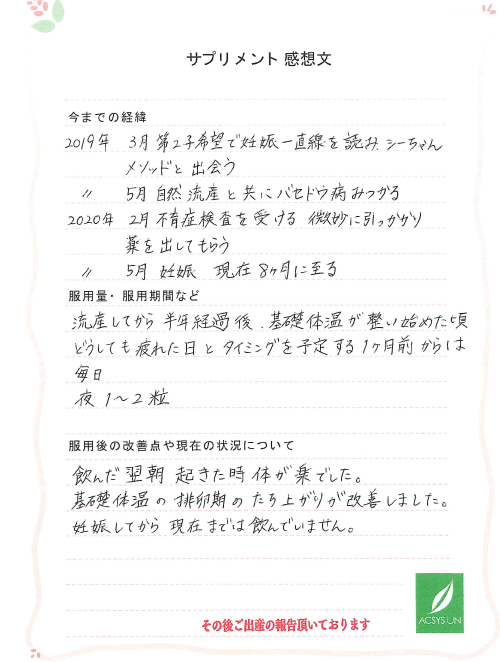 サプリメント 感想文
今までの経緯
2019年 3月 第2子希望で妊娠一直線を読み シーちゃん
メソッドと出会う
〃 5月 自然流産と共にバセドウ病みつかる
2020年 2月 不育症検査を受ける 微妙に引っかかり
薬を出してもらう
〃 5月 妊娠 現在 8ヶ月に至る
服用量・服用期間など
流産してから 半年経過後、基礎体温が整い始めた頃
どうしても疲れた日と タイミングを予定する1ヶ月前からは
毎日
夜 1〜2粒
服用後の改善点や現在の状況について
飲んだ翌朝 起きた時 体が楽でした。
基礎体温の排卵期のたち上がりが改善しました。
妊娠してから 現在までは飲んでいません。
その後ご出産の報告頂いております
ACSYSUN